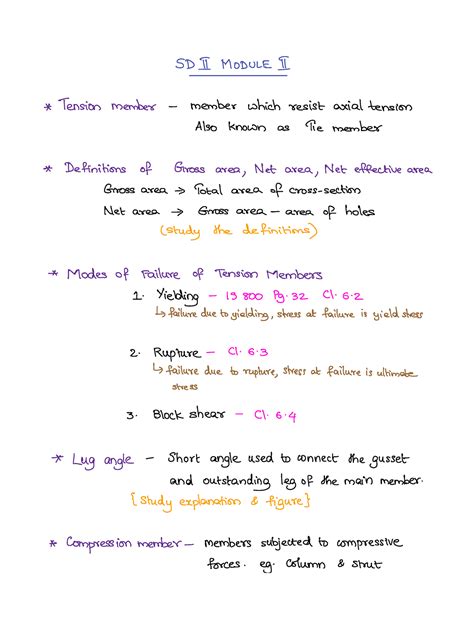 SD II MODULE II
* Tension member – member which resist axial tension
Also known as Tie member
* Definitions of Gross area, Net area, Net effective area
Gross area → Total area of cross-section
Net area → Gross area – area of holes
(study the definitions)
* Modes of Failure of Tension Members
1. Yielding – IS 800 Pg. 32 Cl. 6.2
↳ failure due to yielding, stress at failure is yield stress
2. Rupture – Cl. 6.3
↳ failure due to rupture, stress at failure is ultimate
stress
3. Block shear – Cl. 6.4
* Lug angle – Short angle used to connect the gusset
and outstanding leg of the main member.
[Study explanation & figure}
* Compression member – members subjected to compressive
forces. eg. Column & strut